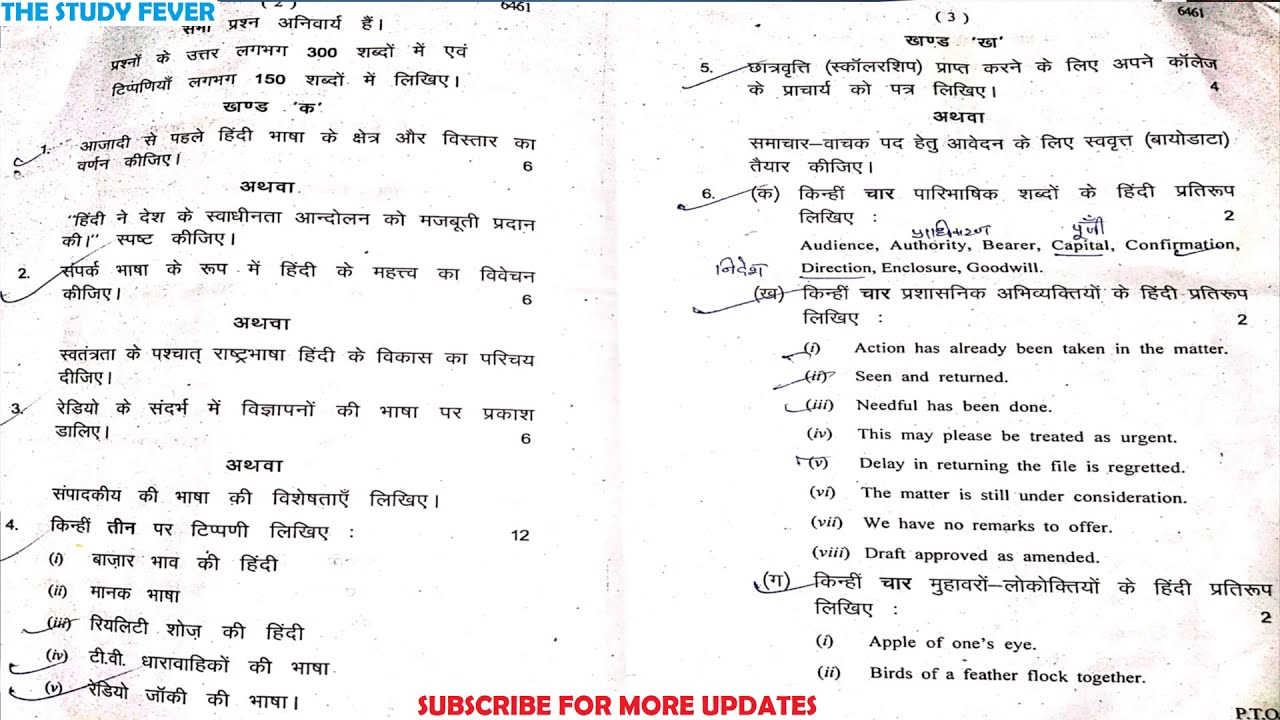 THE STUDY FEVER
( 2 )
6461
सभी प्रश्न अनिवार्य हैं।
प्रश्नों के उत्तर लगभग 300 शब्दों में एवं
टिप्पणियाँ लगभग 150 शब्दों में लिखिए।
खण्ड 'क'
1. आजादी से पहले हिंदी भाषा के क्षेत्र और विस्तार का
वर्णन कीजिए। 6
अथवा
"हिंदी ने देश के स्वाधीनता आन्दोलन को मजबूती प्रदान
की।" स्पष्ट कीजिए।
2. संपर्क भाषा के रूप में हिंदी के महत्त्व का विवेचन
कीजिए। 6
अथवा
स्वतंत्रता के पश्चात् राष्ट्रभाषा हिंदी के विकास का परिचय
दीजिए।
3. रेडियो के संदर्भ में विज्ञापनों की भाषा पर प्रकाश
डालिए। 6
अथवा
संपादकीय की भाषा की विशेषताएँ लिखिए।
4. किन्हीं तीन पर टिप्पणी लिखिए : 12
(i) बाज़ार भाव की हिंदी
(ii) मानक भाषा
(iii) रियलिटी शोज़ की हिंदी
(iv) टी.वी. धारावाहिकों की भाषा
(v) रेडियो जॉकी की भाषा।
( 3 )
6461
खण्ड 'ख'
5. छात्रवृत्ति (स्कॉलरशिप) प्राप्त करने के लिए अपने कॉलेज
के प्राचार्य को पत्र लिखिए। 4
अथवा
समाचार-वाचक पद हेतु आवेदन के लिए स्ववृत्त (बायोडाटा)
तैयार कीजिए।
6. (क) किन्हीं चार पारिभाषिक शब्दों के हिंदी प्रतिरूप
लिखिए : 2
प्राधिकरण पूँजी
Audience, Authority, Bearer, Capital, Confirmation,
निदेश Direction, Enclosure, Goodwill.
(ख) किन्हीं चार प्रशासनिक अभिव्यक्तियों के हिंदी प्रतिरूप
लिखिए : 2
(i) Action has already been taken in the matter.
(ii) Seen and returned.
(iii) Needful has been done.
(iv) This may please be treated as urgent.
(v) Delay in returning the file is regretted.
(vi) The matter is still under consideration.
(vii) We have no remarks to offer.
(viii) Draft approved as amended.
(ग) किन्हीं चार मुहावरों-लोकोक्तियों के हिंदी प्रतिरूप
लिखिए : 2
(i) Apple of one's eye.
(ii) Birds of a feather flock together.
P.T.O
SUBSCRIBE FOR MORE UPDATES